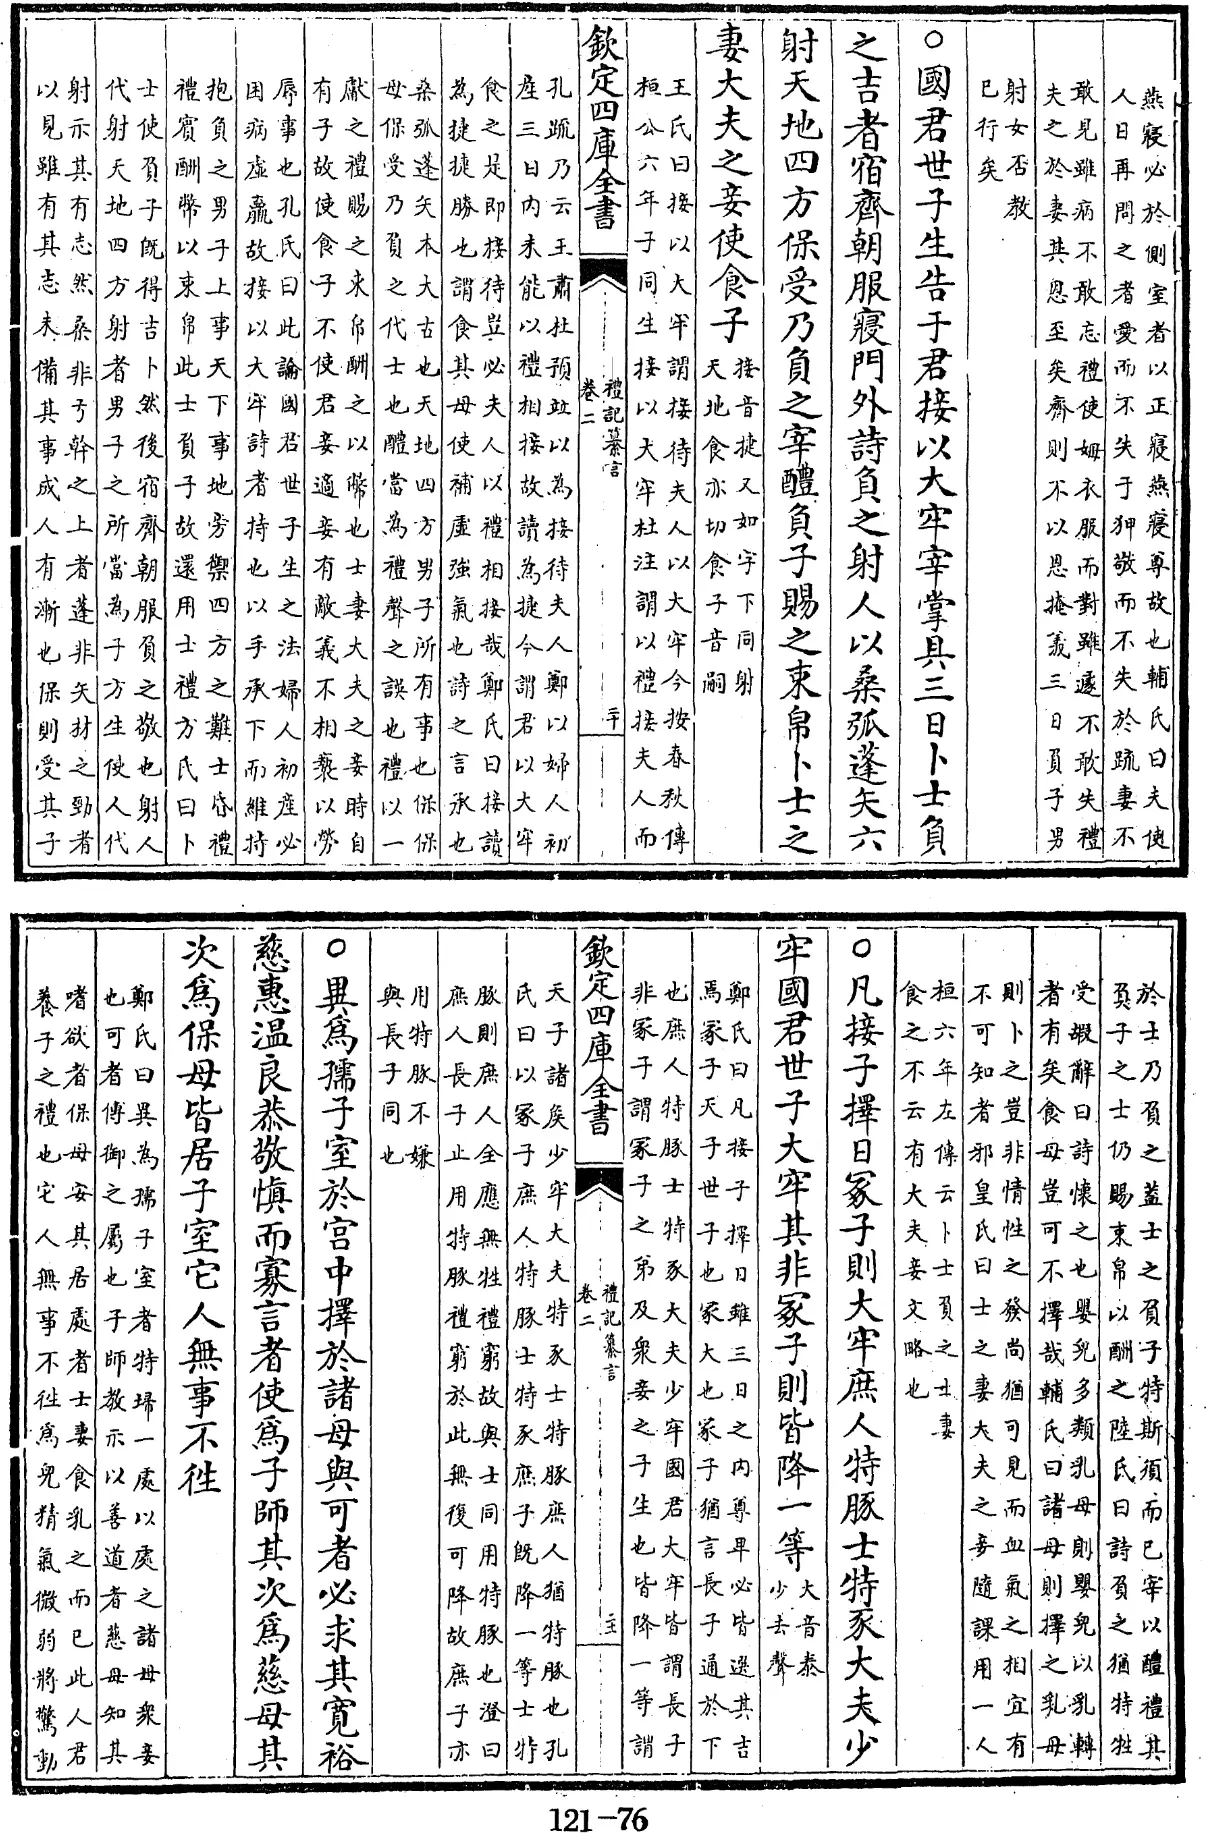 燕寢必於側室者以正寢燕寢尊故也輔氏曰夫使
人日再問之者愛而不失于狎敬而不失於疏妻不
敢見雖病不敢忘禮使姆衣服而對雖遽不敢失禮
夫之於妻其恩至矣齊則不以恩掩義三日負子男
射女否教
已行矣
○國君世子生告于君接以大牢宰掌具三日卜士負
之吉者宿齊朝服寢門外詩負之射人以桑弧蓬矢六
射天地四方保受乃負之宰醴負子賜之束帛卜士之
妻大夫之妾使食子
接音捷又如字下同射
天地食亦切食子音嗣
王氏曰接以大牢謂接待夫人以大牢今按春秋傳
桓公六年子同生接以大牢杜注謂以禮接夫人而
欽定四庫全書
禮記纂言
卷二
二十
孔疏乃云王肅杜預並以為接待夫人鄭以婦人初
產三日内未能以禮相接故讀為捷今謂君以大牢
食之是即接待豈必夫人以禮相接哉鄭氏曰接讀
為捷捷勝也謂食其母使補虛強氣也詩之言承也
桑弧蓬矢本大古也天地四方男子所有事也保保
母保受乃負之代士也醴當為禮聲之誤也禮以一
獻之禮賜之束帛酬之以幣也士妻大夫之妾時自
有子故使食子不使君妾適妾有敵義不相褻以勞
辱事也孔氏曰此論國君世子生之法婦人初產必
困病虛羸故接以大牢詩者持也以手承下而維持
抱負之男子上事天下事地旁禦四方之難士昏禮
禮賓酬幣以束帛此士負子故還用士禮方氏曰卜
士使負子既得吉卜然後宿齊朝服負之敬也射人
代射天地四方射者男子之所當為子方生使人代
射示其有志然桑非弓幹之上者蓬非矢材之勁者
以見雖有其志未備其事成人有漸也保則受其子
於士乃負之蓋士之負子特斯須而已宰以醴禮其
負子之士仍賜束帛以酬之陸氏曰詩負之猶特牲
受嘏辭曰詩懷之也嬰兒多類乳母則嬰兒以乳轉
者有矣食母豈可不擇哉輔氏曰諸母則擇之乳母
則卜之豈非情性之發尚猶可見而血氣之相宜有
不可知者邪皇氏曰士之妻大夫之妾隨課用一人
桓六年左傳云卜士負之士妻
食之不云有大夫妾文略也
○凡接子擇日冢子則大牢庶人特豚士特豕大夫少
牢國君世子大牢其非冢子則皆降一等
大音泰
少去聲
鄭氏曰凡接子擇日雖三日之内尊卑必皆選其吉
焉冢子天子世子也冢大也冢子猶言長子通於下
也庶人特豚士特豕大夫少牢國君大牢皆謂長子
非冢子謂冢子之弟及衆妾之子生也皆降一等謂
欽定四庫全書
禮記纂言
卷二
二十一
天子諸侯少牢大夫特豕士特豚庶人猶特豚也孔
氏曰以冢子庶人特豚士特豕庶子既降一等士特
豚則庶人全應無牲禮窮故與士同用特豚也澄曰
庶人長子止用特豚禮窮於此無復可降故庶子亦
用特豚不嫌
與長子同也
○異為孺子室於宮中擇於諸母與可者必求其寬裕
慈惠温良恭敬慎而寡言者使為子師其次為慈母其
次為保母皆居子室它人無事不徃
鄭氏曰異為孺子室者特埽一處以處之諸母衆妾
也可者傅御之屬也子師教示以善道者慈母知其
嗜欲者保母安其居處者士妻食乳之而已此人君
養子之禮也它人無事不徃為兒精氣微弱將驚動
121-76